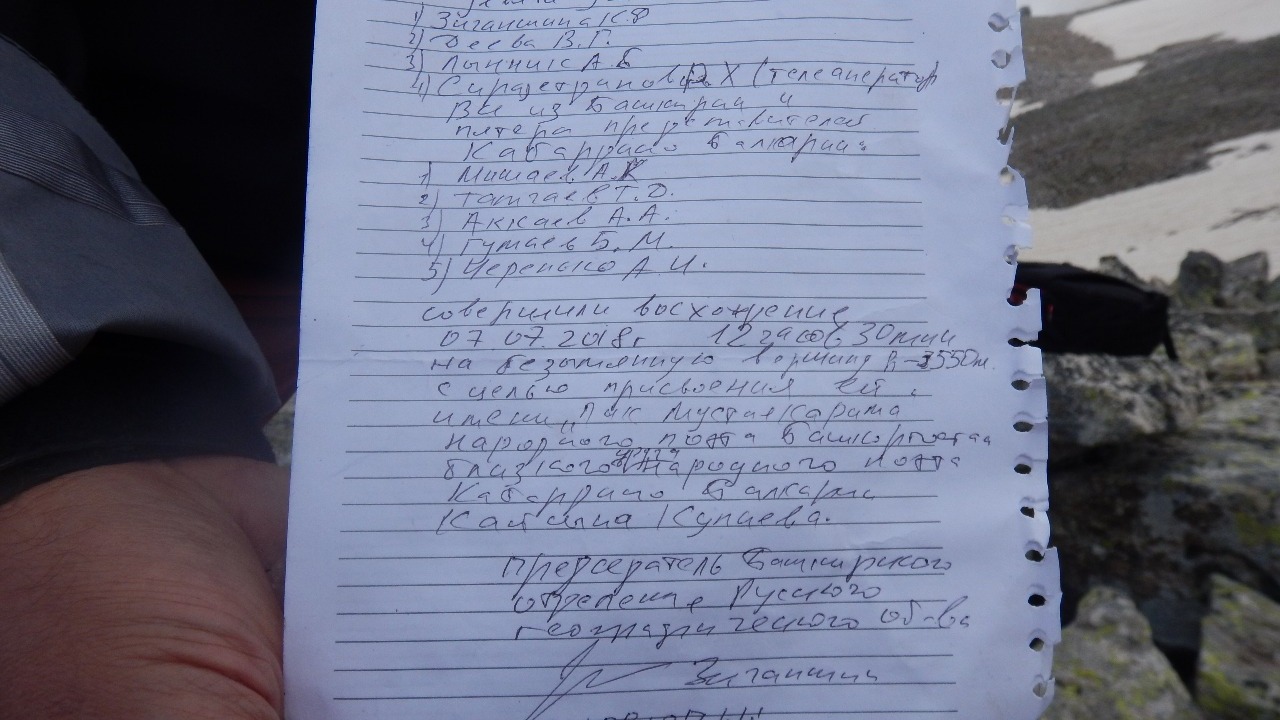 1) Зиганшина К.Ф
2) Деева В.Г.
3) Лынник А.Б
4) Сиразетдинов Х (телеаператор
Все из Башкирии и
пятера представителей
Кабардино Балкарии
1) Мишаев А.К
2) Татчаев Т.О.
3) Аккаев А.А.
4) Гумаев Б.М.
5) Черенько А.И.
совершили восхождение
07 07.2018г 12 часов 30мин
на безымянную вершину h-3550м.
с целью присвоения ей
имени „Пик Мустая Карима
народного поэта Башкортостан
близкого друга народного поэта
Кабардино Балкарии
Кайсына Кулиева.
Председатель Башкирского
отделение Русского
географического об-ва
Зиганшин